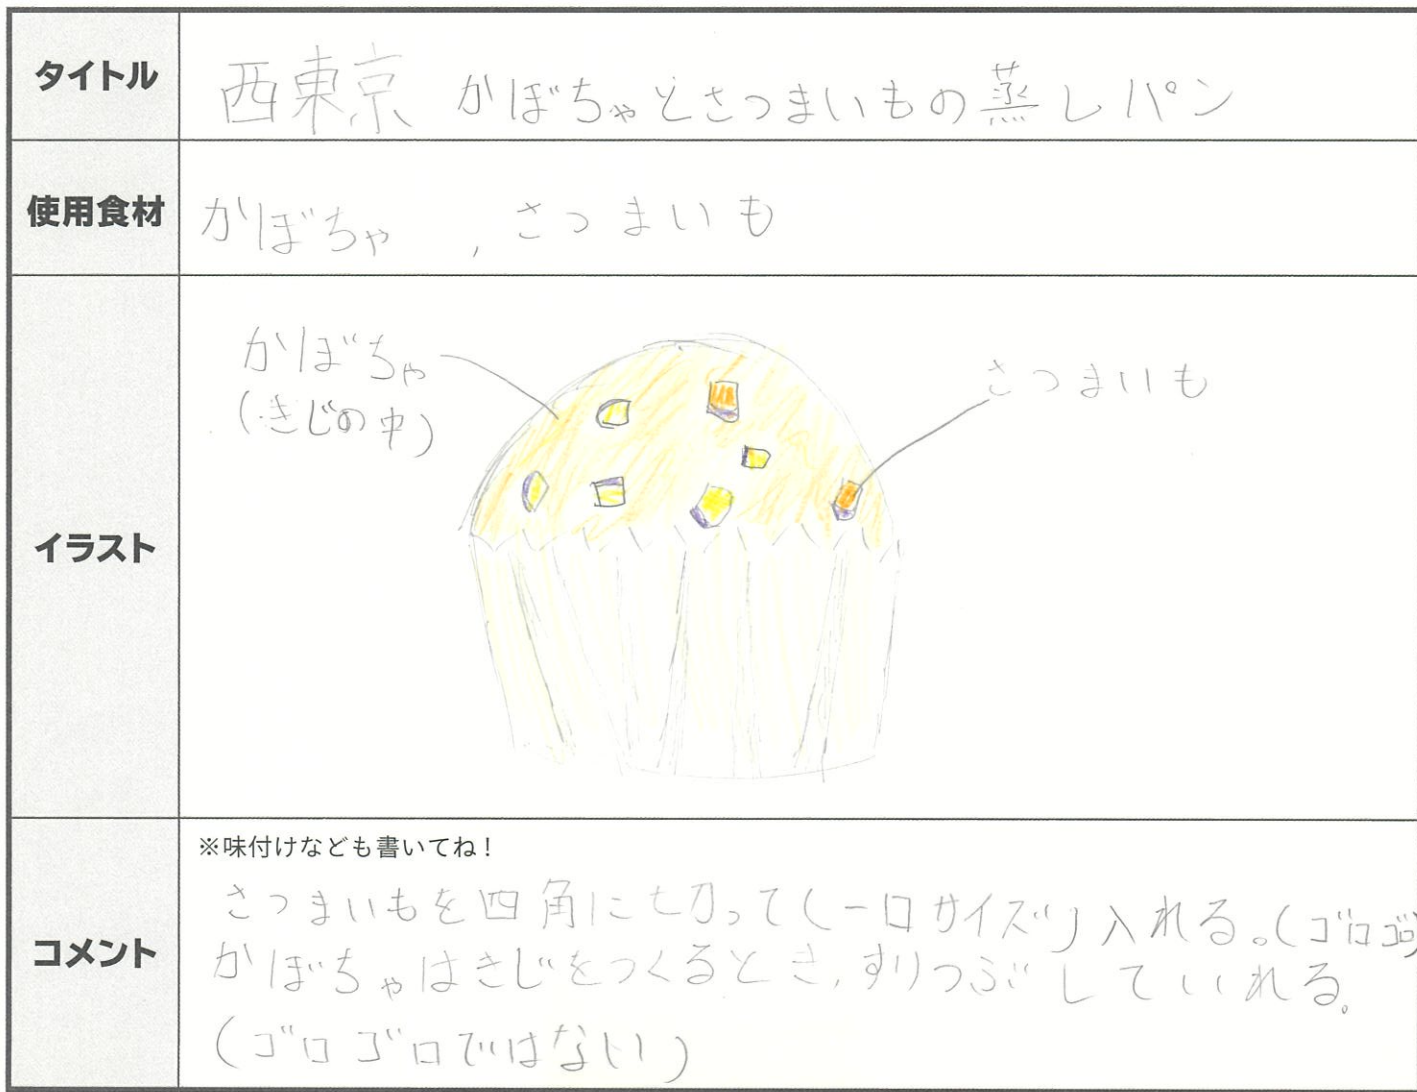 タイトル
西東京 かぼちゃとさつまいもの蒸しパン
使用食材
かぼちゃ , さつまいも
イラスト
かぼちゃ
(きじの中)
さつまいも
コメント
※味付けなども書いてね！
さつまいもを四角に切って(一口サイズ)入れる。(ゴロゴロ)
かぼちゃはきじをつくるとき,すりつぶしていれる。
(ゴロゴロではない)